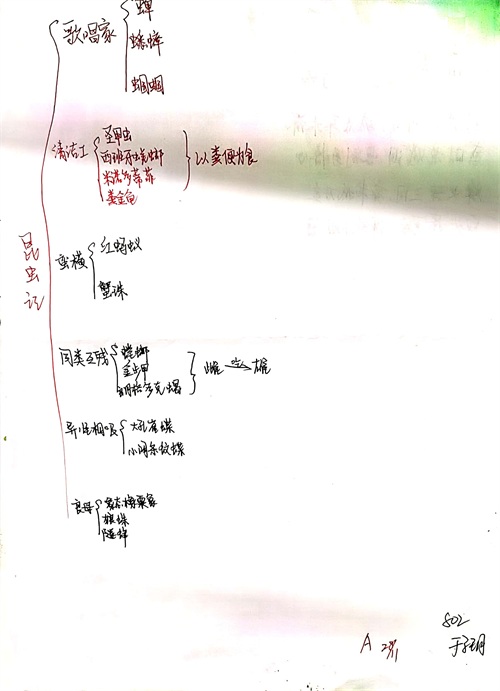 昆虫记
歌唱家
蝉
蟋蟀
蝈蝈
清洁工
圣甲虫
西班牙蜣螂
米诺多蒂菲
粪金龟
以粪便为食
蛮横
红蚂蚁
蟹珠
同类互残
螳螂
金步甲
朗格多克蝎
雌 吃→ 雄
异性相吸
大孔雀蝶
小阔条纹蝶
良母
狼珠
802
于玥
A